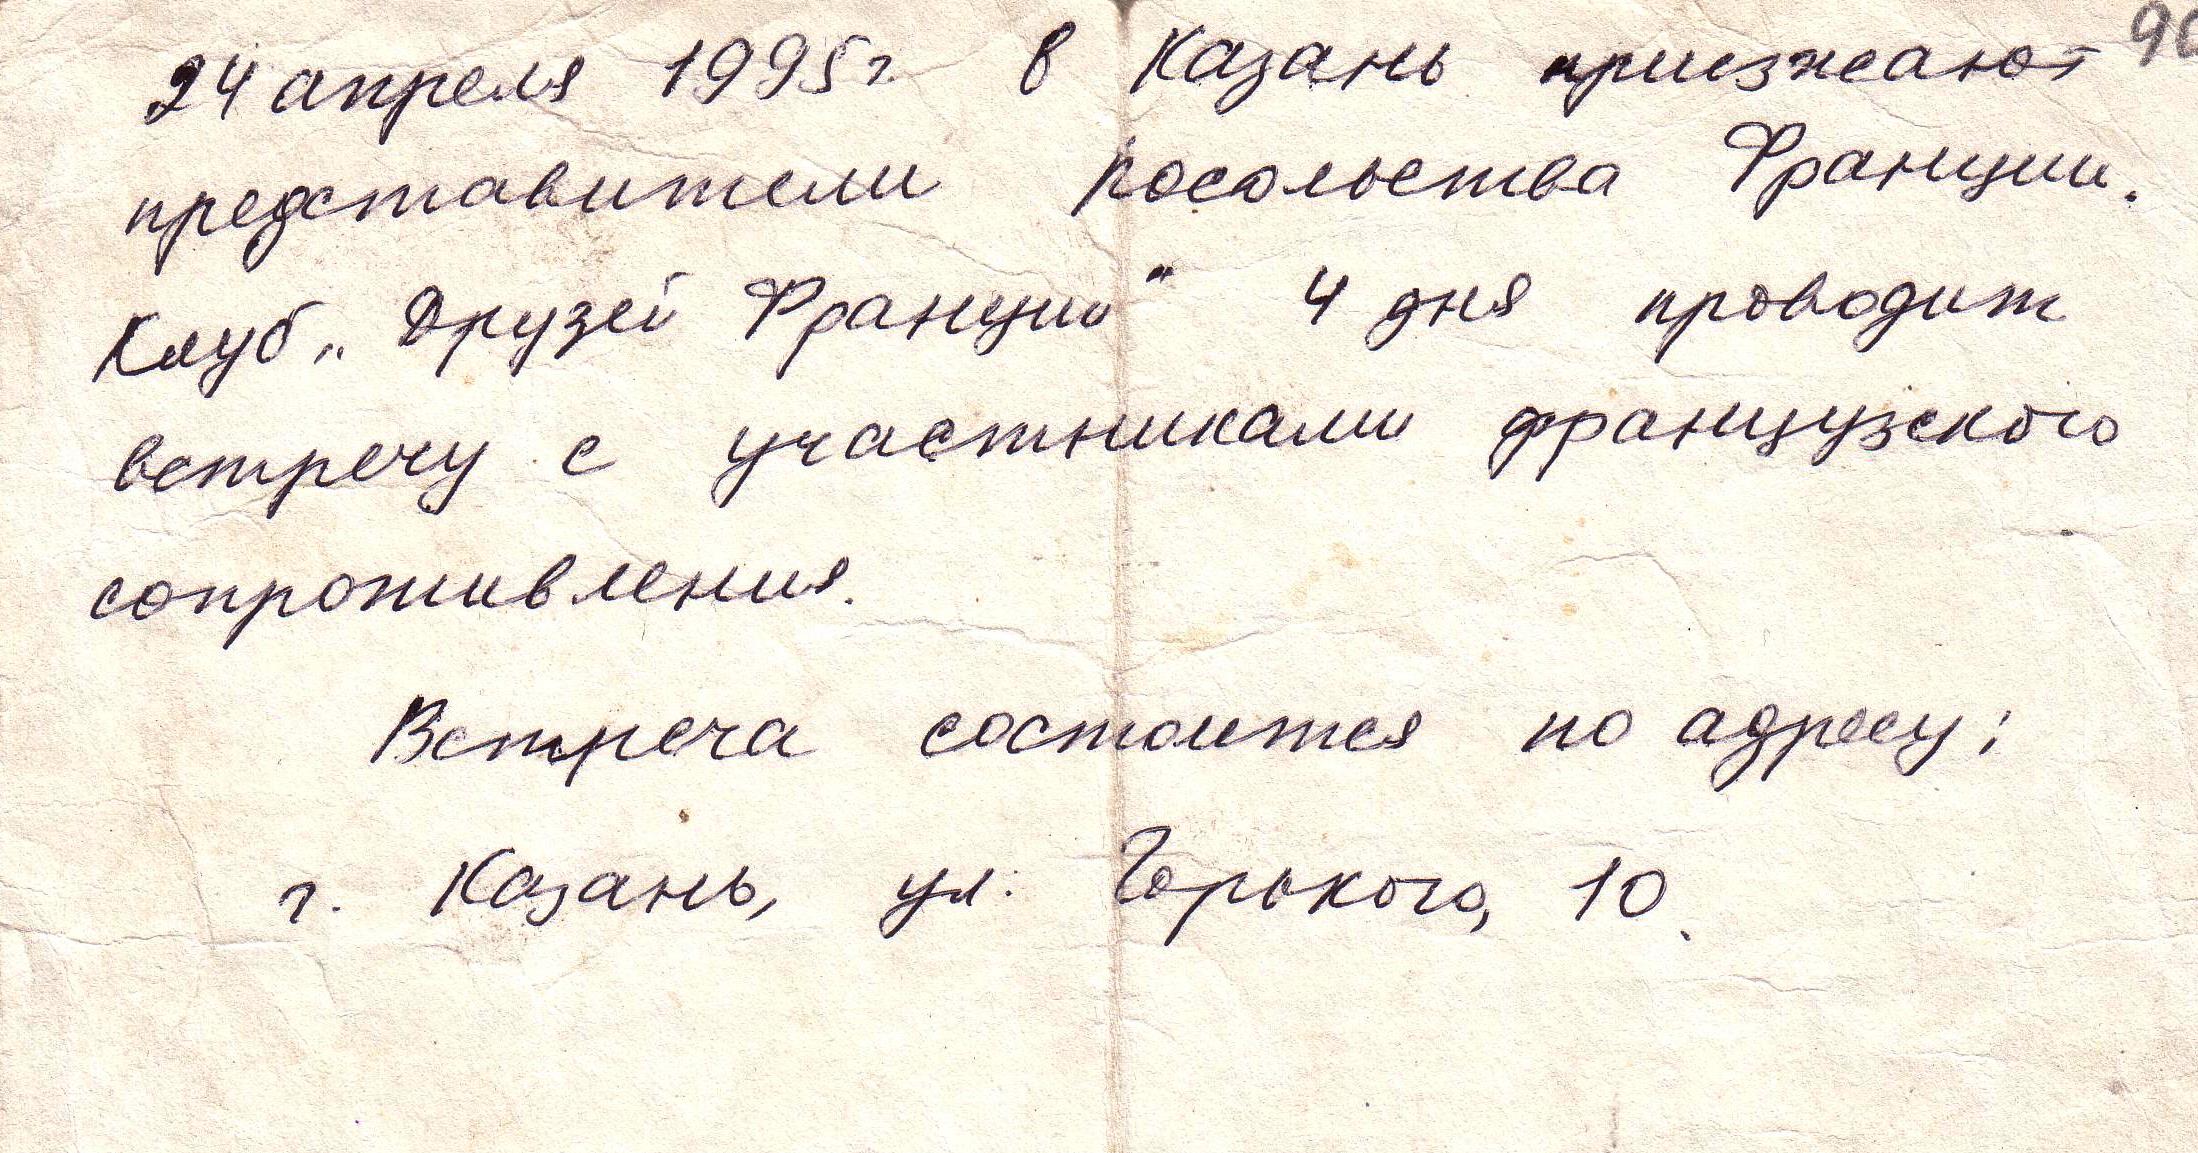 24 апреля 1995 г. в Казань приезжают
представители посольства Франции.
Клуб „Друзей Франции" 4 дня проводит
встречу с участниками французского
сопротивления.
Встреча состоится по адресу:
г. Казань, ул. Горького, 10.